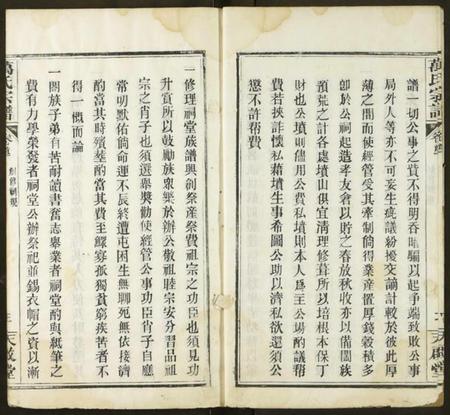 萬氏宗譜
譜一切公事之費不得明吞暗騙以起爭端致敗公事
局外人等亦不可妄生疵議紛擾交謫計較於彼此厚
薄之間而使經管受其牽制倘得業產豐厚錢穀積多
卽於公祠起造孝友倉以貯之春放秋收亦以備闔族
預荒之計各處墳山俱宜清理修葺所以培根本保丁
財也公墳則儘用公費私墳則本人爲主公場酌議幫
費若挾詐懷私藉墳生事希圖公助以濟私欲還須公
懲不許幫費
天敘堂
萬氏宗譜
一修理祠堂族譜興創祭產祭費祖宗之功臣也須見功
升賞所以鼓勵族衆樂於辦公敬祖睦宗安分習品祖
宗之肖子也須選舉獎勸使經管公事功臣肖子自應
常明默佑倘命運不辰終遭屯困生無聊死無依接濟
酌當其時殯塟酌當其費至鰥寡孤獨貧窮疾苦者不
得一概而論
一闔族子弟有苦耐讀書奮志舉業者祠堂酌與紙筆之
費有力學榮發者祠堂公辦祭祀並錫衣帽之資以漸
天敘堂